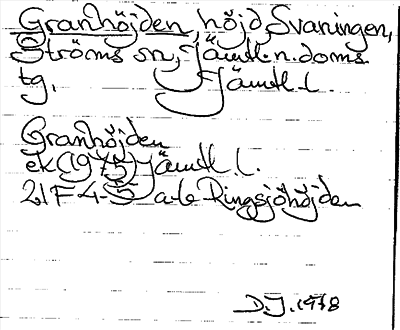 Granhöjden, höjd Svaningen,
Ströms sn, Jämtl. n. doms
tg. Jämtl. l.
Granhöjden
ek (1975) Jämtl. l.
21F 4-5 a-b Ringsjöhöjden
D.J. 1978